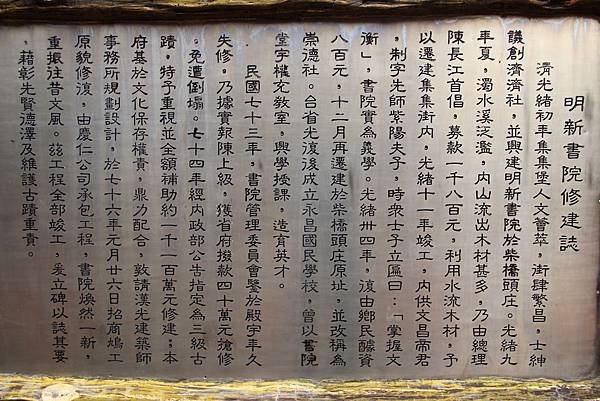 明新書院修建誌
清光緒初年集集堡人文薈萃，街肆繁昌，士紳
議創濟濟社，並興建明新書院於柴橋頭庄。光緒九
年夏，濁水溪泛濫，內山流出木材甚多，乃由總理
陳長江首倡，募款一千八百元，利用水流木材，予
以遷建集集街內，光緒十一年竣工，內供文昌帝君
，制字先師紫陽夫子，時眾士子立匾曰：「掌握文
衡」，書院實為義學。光緒卅四年，復由鄉民醵資
八百元，十二月再遷建於柴橋頭庄原址，並改稱為
崇德社。台省光復後成立永昌國民學校，曾以書院
堂宇權充教室，興學授課，造育英才。
民國七十三年，書院管理委員會鑒於殿宇年久
失修，乃據實報陳上級，獲省府撥款四十萬元搶修
，免遭倒塌。七十四年經內政部公告指定為三級古
蹟，特予重視並全額補助約一千一百萬元修建；本
府基於文化保存權責，鼎力配合，敦請漢光建築師
事務所規劃設計，於七十六年元月廿六日招商鳩工
原貌修復，由慶仁公司承包工程，書院煥然一新，
重振往昔文風。茲工程全部竣工，爰立碑以誌其要
，藉彰先賢德澤及維護古蹟重責。